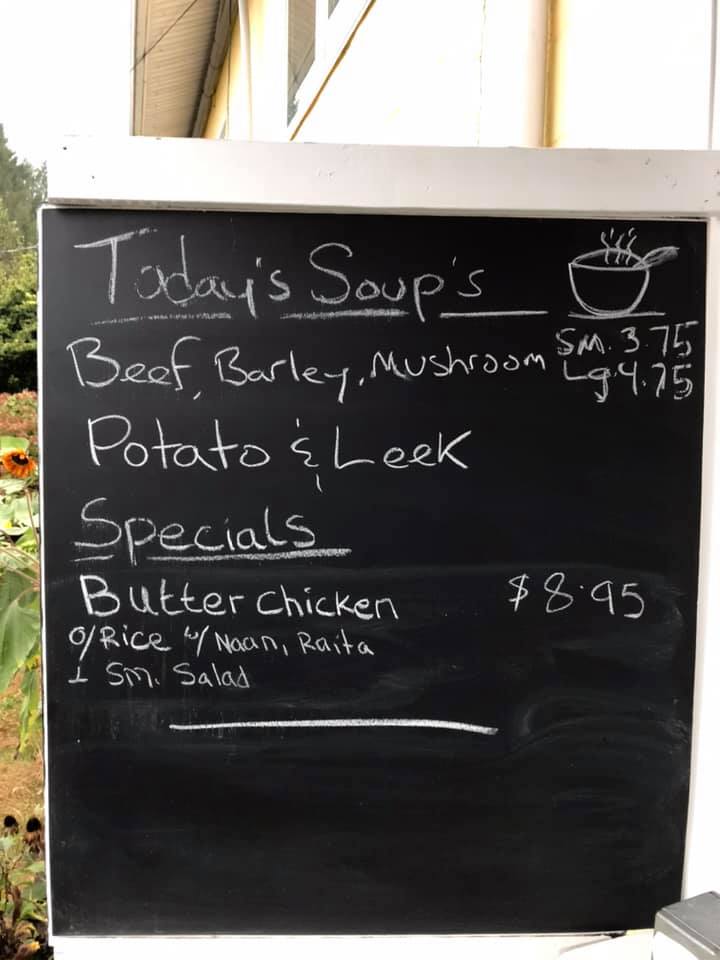 Today's Soup's
Beef, Barley, Mushroom
Sm. 3.75
Lg. 4.75
Potato & Leek
Specials
Butter chicken $8.95
o/Rice w/ Naan, Raita
+ Sm. Salad